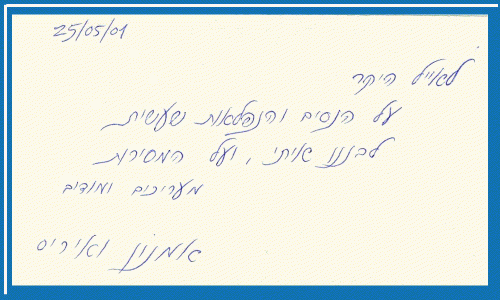 25/05/01
לאייל היקר
על הנסים והנפלאות שעשית
לבננו איתי, ועל המסירות
מעריכים ומודים
אמנון ואיריס